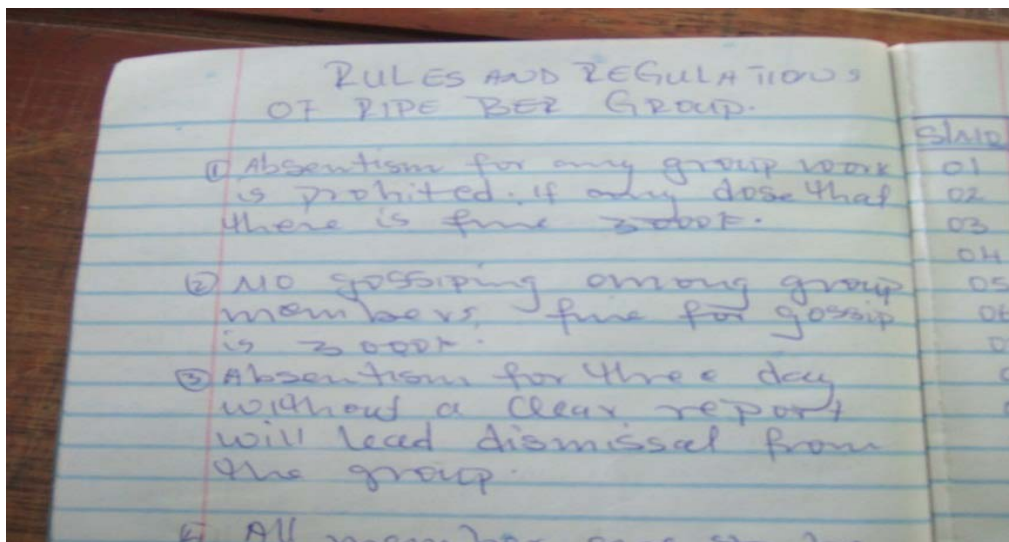 RULES AND REGULATIONS
OF RIPE BER GROUP.
① Absentism for any group work
is prohited. if any dose that
there is fine 3000F.
② NO gossiping among group
members, fine for gossip
is 3000F.
③ Absentism for three day
without a clear report
will lead dismissal from
the group.
④ All
S/N
01
02
03
04
05